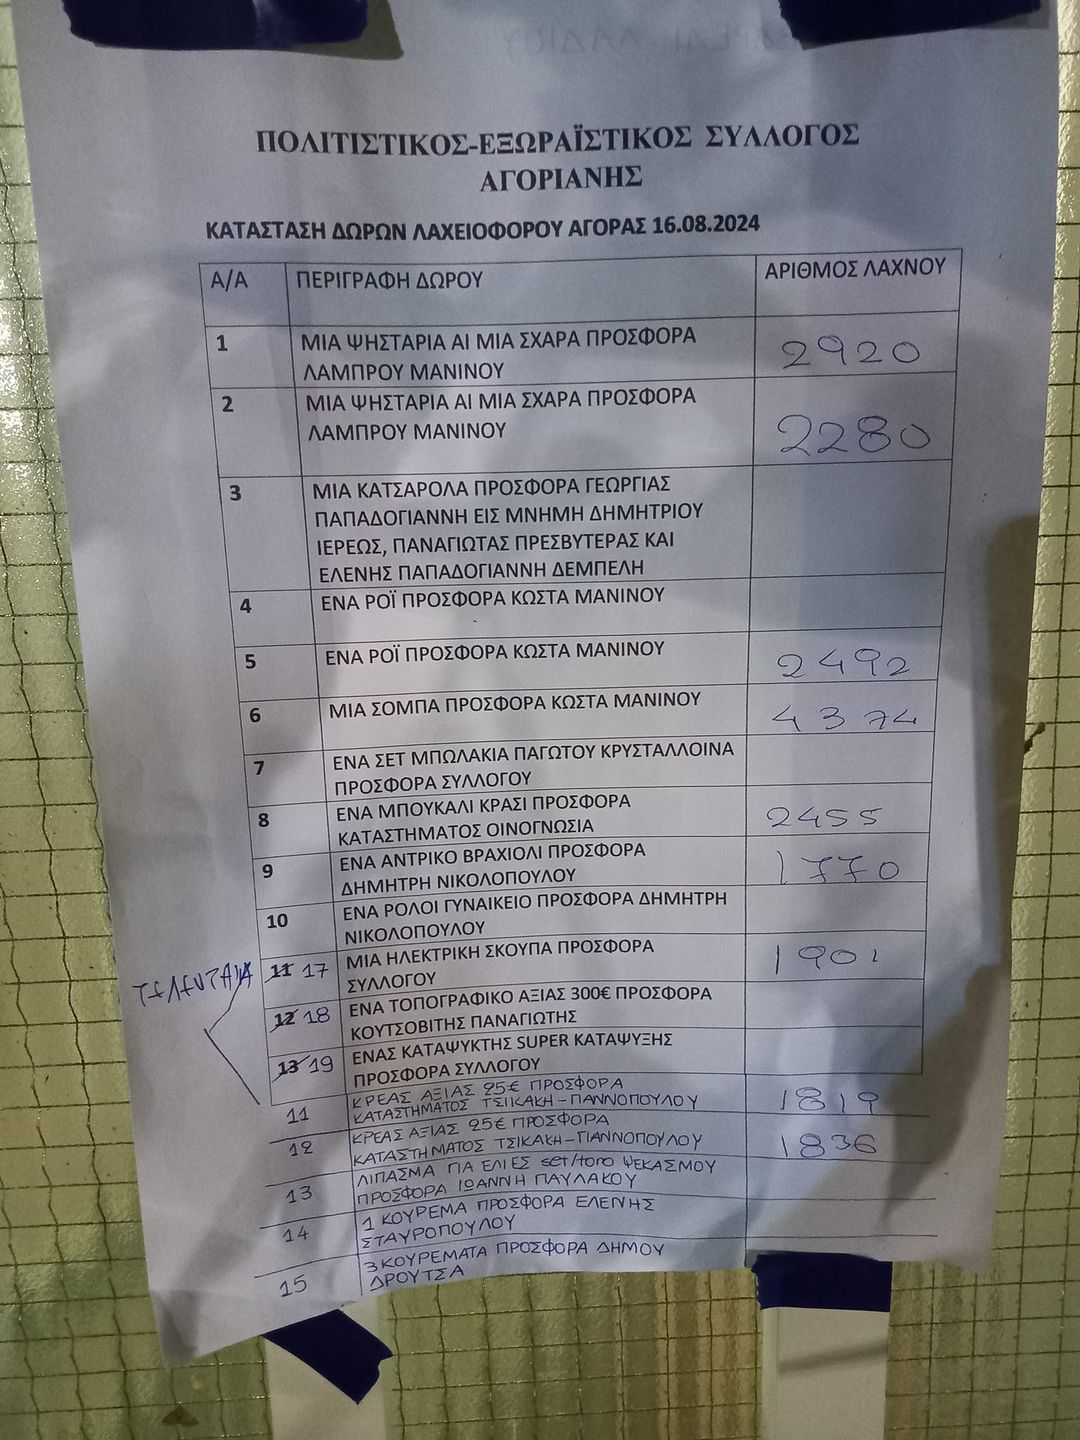 ΠΟΛΙΤΙΣΤΙΚΟΣ-ΕΞΩΡΑΪΣΤΙΚΟΣ ΣΥΛΛΟΓΟΣ
ΑΓΟΡΙΑΝΗΣ
ΚΑΤΑΣΤΑΣΗ ΔΩΡΩΝ ΛΑΧΕΙΟΦΟΡΟΥ ΑΓΟΡΑΣ 16.08.2024
Α/Α ΠΕΡΙΓΡΑΦΗ ΔΩΡΟΥ ΑΡΙΘΜΟΣ ΛΑΧΝΟΥ
1 ΜΙΑ ΨΗΣΤΑΡΙΑ ΑΙ ΜΙΑ ΣΧΑΡΑ ΠΡΟΣΦΟΡΑ 2920
ΛΑΜΠΡΟΥ ΜΑΝΙΝΟΥ
2 ΜΙΑ ΨΗΣΤΑΡΙΑ ΑΙ ΜΙΑ ΣΧΑΡΑ ΠΡΟΣΦΟΡΑ
ΛΑΜΠΡΟΥ ΜΑΝΙΝΟΥ 2280
3 ΜΙΑ ΚΑΤΣΑΡΟΛΑ ΠΡΟΣΦΟΡΑ ΓΕΩΡΓΙΑΣ
ΠΑΠΑΔΟΓΙΑΝΝΗ ΕΙΣ ΜΝΗΜΗ ΔΗΜΗΤΡΙΟΥ
ΙΕΡΕΩΣ, ΠΑΝΑΓΙΩΤΑΣ ΠΡΕΣΒΥΤΕΡΑΣ ΚΑΙ
ΕΛΕΝΗΣ ΠΑΠΑΔΟΓΙΑΝΝΗ ΔΕΜΠΕΛΗ
4 ΕΝΑ ΡΟΪ ΠΡΟΣΦΟΡΑ ΚΩΣΤΑ ΜΑΝΙΝΟΥ
5 ΕΝΑ ΡΟΪ ΠΡΟΣΦΟΡΑ ΚΩΣΤΑ ΜΑΝΙΝΟΥ 2492
6 ΜΙΑ ΣΟΜΠΑ ΠΡΟΣΦΟΡΑ ΚΩΣΤΑ ΜΑΝΙΝΟΥ 4374
7 ΕΝΑ ΣΕΤ ΜΠΩΛΑΚΙΑ ΠΑΓΩΤΟΥ ΚΡΥΣΤΑΛΛΟΙΝΑ
ΠΡΟΣΦΟΡΑ ΣΥΛΛΟΓΟΥ
8 ΕΝΑ ΜΠΟΥΚΑΛΙ ΚΡΑΣΙ ΠΡΟΣΦΟΡΑ 2455
ΚΑΤΑΣΤΗΜΑΤΟΣ ΟΙΝΟΓΝΩΣΙΑ
9 ΕΝΑ ΑΝΤΡΙΚΟ ΒΡΑΧΙΟΛΙ ΠΡΟΣΦΟΡΑ 1770
ΔΗΜΗΤΡΗ ΝΙΚΟΛΟΠΟΥΛΟΥ
10 ΕΝΑ ΡΟΛΟΙ ΓΥΝΑΙΚΕΙΟ ΠΡΟΣΦΟΡΑ ΔΗΜΗΤΡΗ
ΝΙΚΟΛΟΠΟΥΛΟΥ
ΤΕΛΕΥΤΑΙΑ 11 17 ΜΙΑ ΗΛΕΚΤΡΙΚΗ ΣΚΟΥΠΑ ΠΡΟΣΦΟΡΑ 1901
ΣΥΛΛΟΓΟΥ
12 18 ΕΝΑ ΤΟΠΟΓΡΑΦΙΚΟ ΑΞΙΑΣ 300€ ΠΡΟΣΦΟΡΑ
ΚΟΥΤΣΟΒΙΤΗΣ ΠΑΝΑΓΙΩΤΗΣ
13 19 ΕΝΑΣ ΚΑΤΑΨΥΚΤΗΣ SUPER ΚΑΤΑΨΥΞΗΣ
ΠΡΟΣΦΟΡΑ ΣΥΛΛΟΓΟΥ
11 ΚΡΕΑΣ ΑΞΙΑΣ 25€ ΠΡΟΣΦΟΡΑ 1819
ΚΑΤΑΣΤΗΜΑΤΟΣ ΤΣΙΚΑΚΗ-ΓΙΑΝΝΟΠΟΥΛΟΥ
12 ΚΡΕΑΣ ΑΞΙΑΣ 25€ ΠΡΟΣΦΟΡΑ 1836
ΚΑΤΑΣΤΗΜΑΤΟΣ ΤΣΙΚΑΚΗ-ΓΙΑΝΝΟΠΟΥΛΟΥ
13 ΛΙΠΑΣΜΑ ΓΙΑ ΕΛΙΕΣ set/toro ΨΕΚΑΣΜΟΥ
ΠΡΟΣΦΟΡΑ ΙΩΑΝΝΗ ΠΑΥΛΑΚΟΥ
14 1 ΚΟΥΡΕΜΑ ΠΡΟΣΦΟΡΑ ΕΛΕΝΗΣ
ΣΤΑΥΡΟΠΟΥΛΟΥ
15 3 ΚΟΥΡΕΜΑΤΑ ΠΡΟΣΦΟΡΑ ΔΗΜΟΥ
ΔΡΟΥΤΣΑ